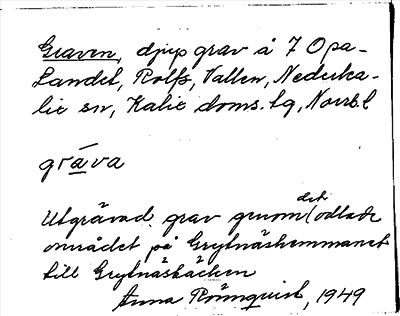 Graven, djup grav å 7 Opa-
Landet, Rolfs, Vallen, Nederka-
lix sn, Kalix doms. lg, Norrb. l
gràva
Utgrävad grav genom det odlade
området på Grytnäshemmanet
till Grytnäsbäcken
Anna Rönnquist, 1949